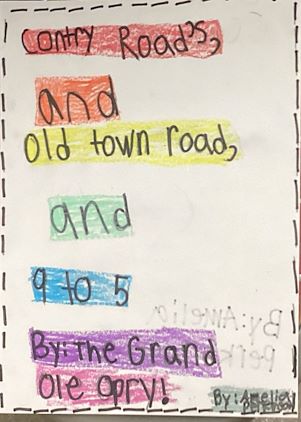 Contry Road's,
and
Old town road,
and
9 to 5
By: The Grand
Ole Opry!
By: Amelia